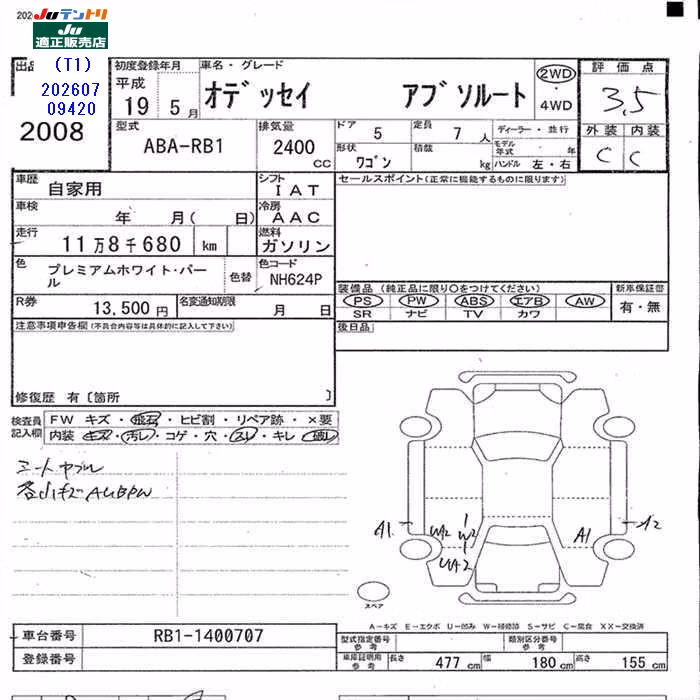 202
Juテントリ
Ju
適正販売店
出品
(T1)
202607
09420
2008
初度登録年月
平成
19 5月
車名・グレード
オデッセイ アブソルート
2WD
4WD
評価点
3.5
外装 内装
C C
型式
ABA-RB1
排気量
2400
CC
ドア 5
定員 7人
ディーラー・並行
形状
ワゴン
積載
kg
モデル年式 年
ハンドル 左・右
車歴
自家用
シフト
IAT
セールスポイント(正常に機能するものに限ります)
車検
年 月( 日)
冷房
AAC
走行
11万8千680 km
燃料
ガソリン
色
プレミアムホワイト・パール
色替
色コード
NH624P
装備品 (純正品に限り○をつけてください)
新車保証部
PS PW ABS エアB AW
SR ナビ TV カワ
有・無
R券
13,500円
名変通知期限
月 日
後日品
注意事項申告欄(不具合内容等は具体的に記入して下さい)
修復歴 有〔箇所 〕
検査員記入欄
FW キズ・飛石・ヒビ割・リペア跡・×要
内装 キズ・汚レ・コゲ・穴・スレ・キレ・破レ
シートヤブレ
各小キズAUBPW
A1 UA2 W2 A1 A2
UA2
スペア
A-キズ E-エクボ U-凹み W-補修跡 S-サビ C-腐食 XX-交換済
車台番号
RB1-1400707
登録番号
型式指定番号
参考
類別区分番号
参考
車庫証明用
参考
長さ 477cm
幅 180cm
高さ 155cm